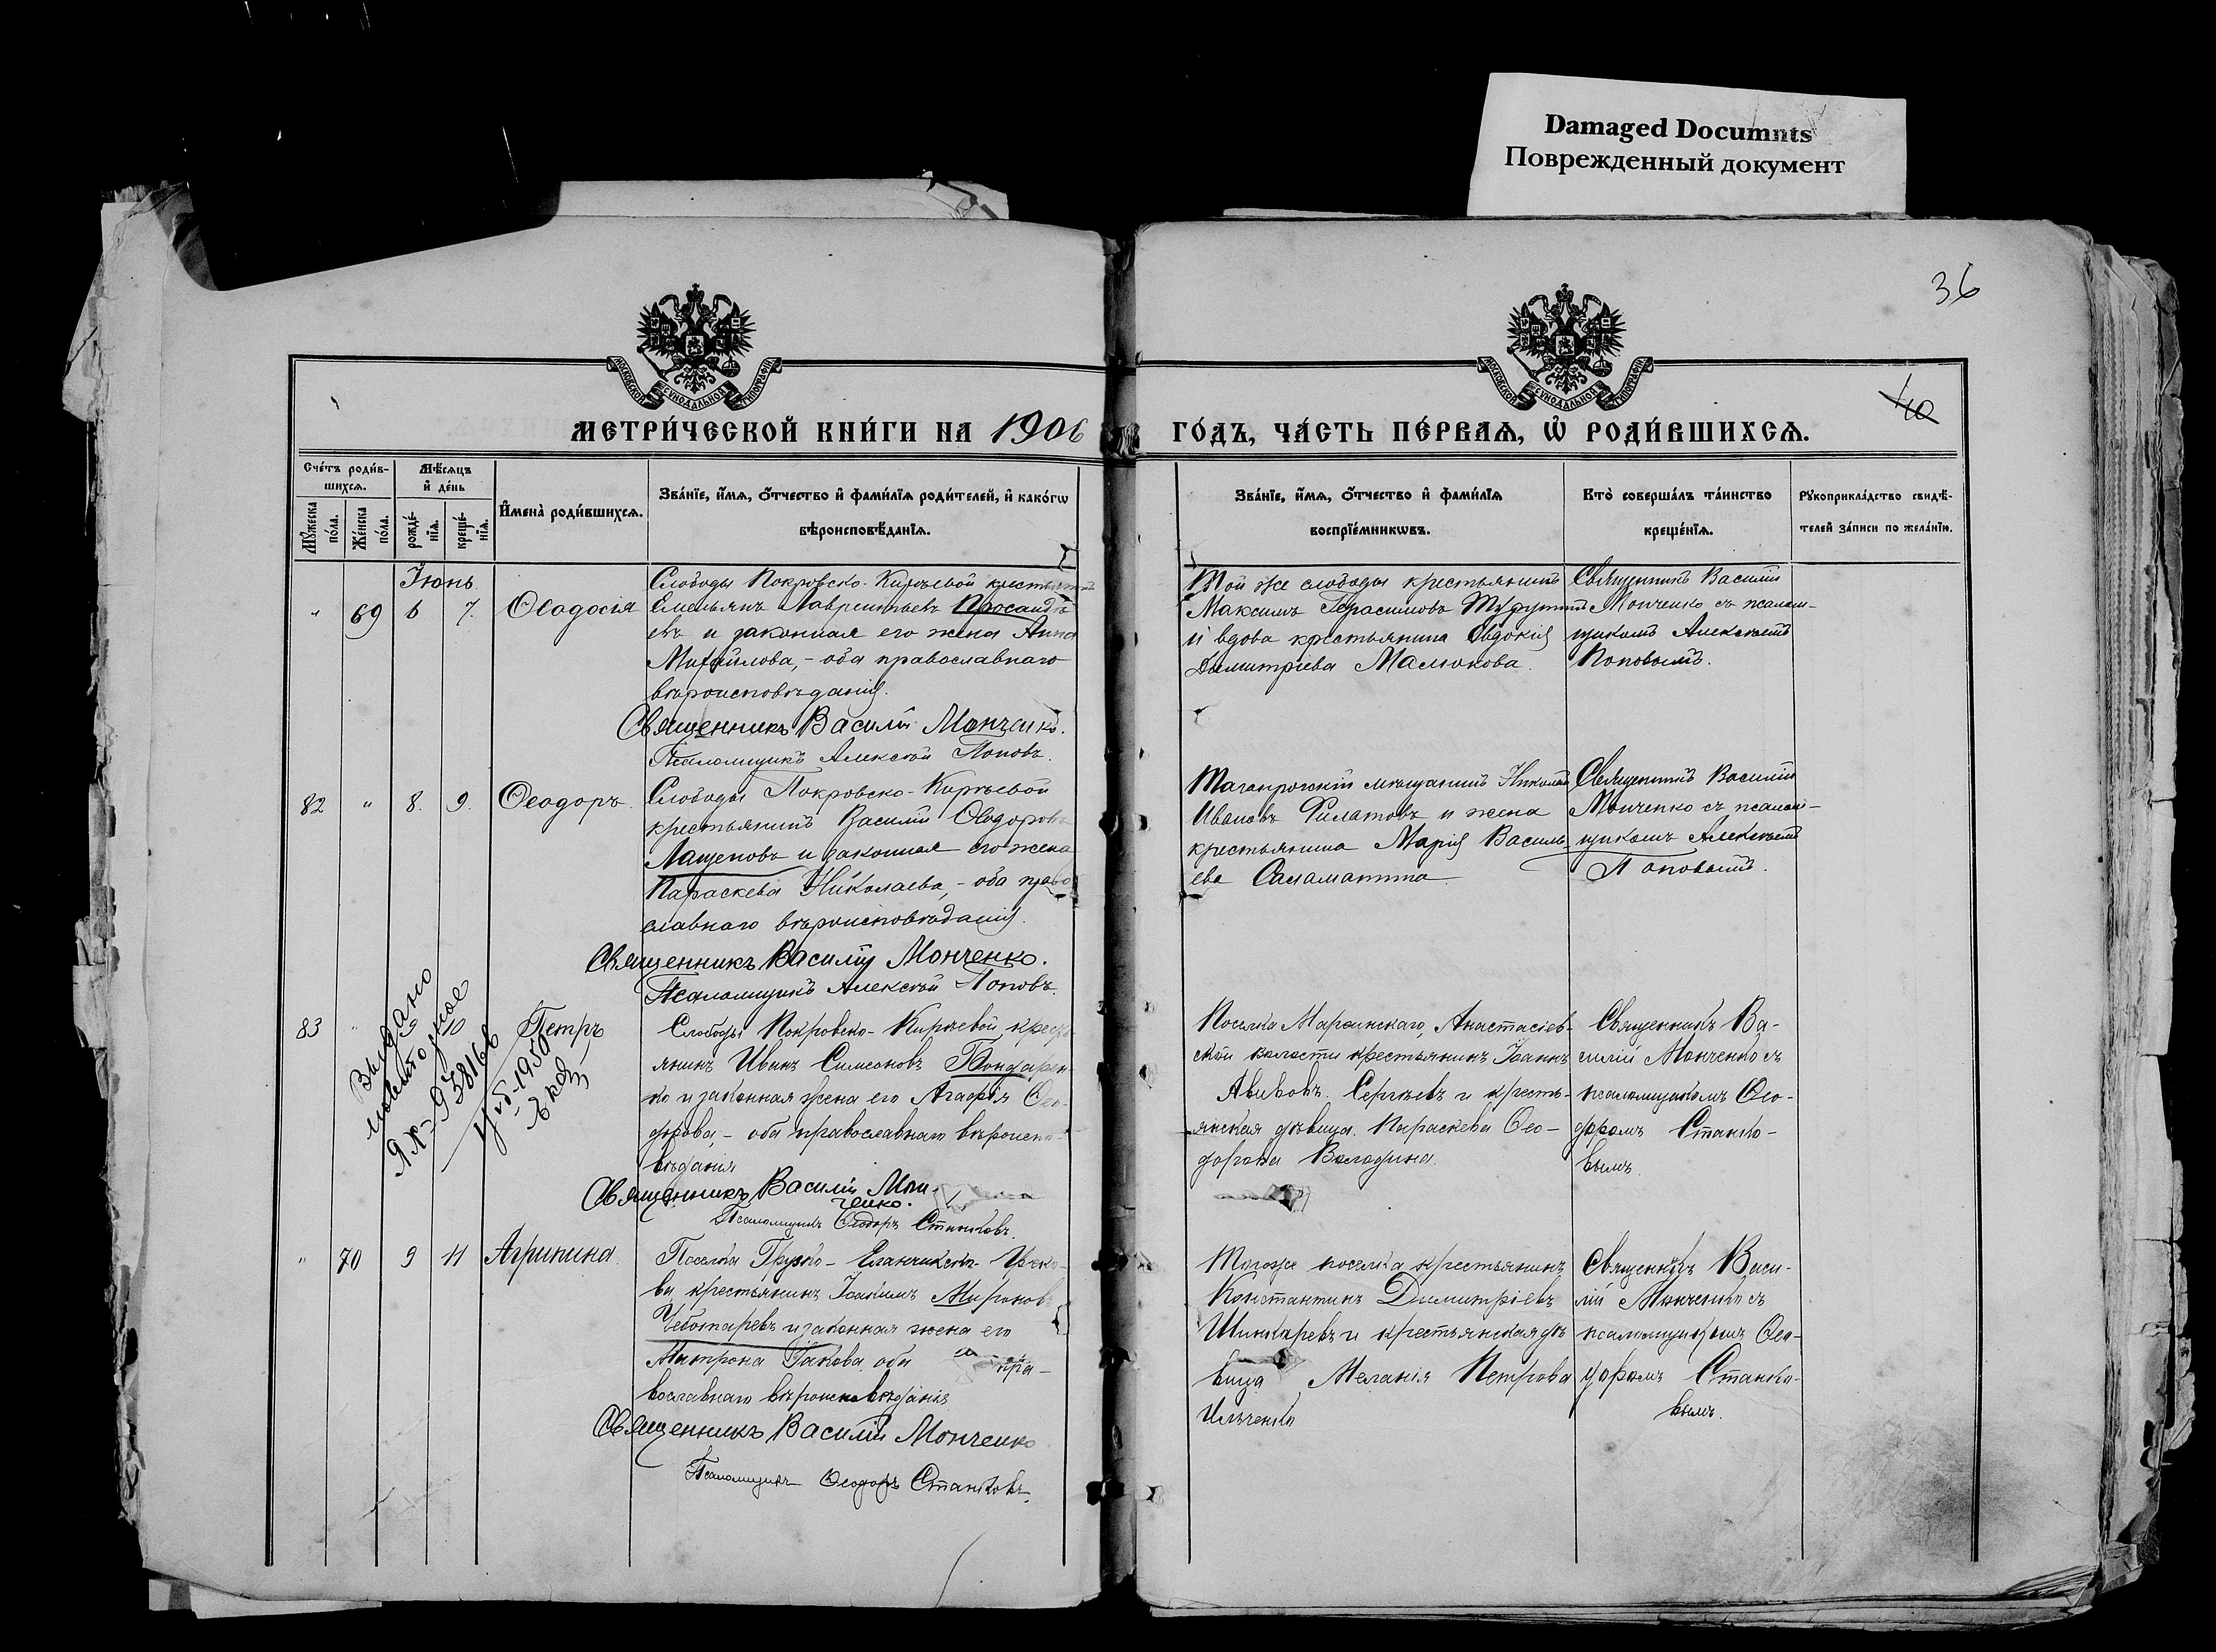 Damaged Documnts
Поврежденный документ
36
40
МОСКОВСКОЙ СУНОДАЛЬНОЙ ТИПОГРАФІИ
МОСКОВСКОЙ СУНОДАЛЬНОЙ ТИПОГРАФІИ
МЕТРИ́ЧЕСКОЙ КНИ́ГИ НА 1906
ГО́ДЪ, ЧА́СТЬ ПЕ́РВАѦ, Ѡ РОДИ́ВШИХСѦ.
Сче́тъ роди́в-
шихсѧ.
Мꙋжеска по́ла.
Же́нска по́ла.
Мѣ́сѧцъ
и де́нь
рожде́-
нїѧ.
креще́-
нїѧ.
Имена̀ роди́вшихсѧ.
Зва́нїе, и́мѧ, о́тчество и фами́лїѧ роди́телей, и како́гѡ
вѣроисповѣ́данїѧ.
Зва́нїе, и́мѧ, о́тчество и фами́лїѧ
воспрїе́мникѡвъ.
Кто̀ соверша́лъ та́инство
креще́нїѧ.
Рꙋкоприкла́дство свидѣ́-
телей за́писи по жела́нїю.
Іюнь.
" 69 6 7. Ѳеодосія
Слободы Покровско-Киреевой крестьянинъ
Емельянъ Лаврентьевъ
евъ и законная его жена Анна
Михайлова, - оба православнаго
вѣроисповѣданія.
Священникъ Василій Монченко.
Псаломщикъ Алексѣй Поповъ.
Той же слободы крестьянинъ
Максимъ Герасимовъ
и вдова крестьянина Евдокія
Димитріева Мамонова.
Священникъ Василій
Монченко съ псалом-
щикомъ Алексѣемъ
Поповымъ.
82 " 8. 9. Ѳеодоръ.
Слободы Покровско-Киреевой
крестьянинъ Василій Ѳеодоровъ
Лащеновъ и законная его жена
Параскева Николаева, - оба право
славнаго вѣроисповѣданія.
Священникъ Василій Монченко.
Псаломщикъ Алексѣй Поповъ.
Таганрогскій мѣщанинъ Николай
Ивановъ Филатовъ и жена
крестьянина Марія Василь-
ева Саламатина.
Священникъ Василій
Монченко съ псалом-
щикомъ Алексѣемъ
Поповымъ.
83 " 9 10 Петръ
Выдано
новыто
ЯК-938166
Уб-1950
Слободы Покровско-Киреевой крест
янинъ Иванъ Симеоновъ Бондарен
ко и законная жена его Агафія Ѳео-
дорова, - оба православнаго вѣроиспо-
вѣданія
Священникъ Василій Мон-
ченко.
Псаломщикъ Ѳеодоръ Станковъ.
Поселка Марфинскаго, Анастасіев-
ской волости крестьянинъ Іоаннъ
Авивовъ Сергѣевъ и кресть-
янская дѣвица Параскева Ѳео-
дорова Володина.
Священникъ Ва-
силій Монченко съ
псаломщикомъ Ѳео-
доромъ Станко-
вымъ.
" 70 9 11 Агрипина.
Поселка Грузко-Еланчикскъ-
ва крестьянинъ Іоакимъ Мироновъ
Чеботаревъ и законная жена его
Матрона Іакова оба пра-
вославнаго вѣроисповѣданія
Священникъ Василій Монченко
Псаломщикъ Ѳеодоръ Станковъ.
Тогоже поселка крестьянинъ
Константинъ Димитріевъ
Шинкаревъ и крестьянская дѣ
вица Меланія Петрова
Ильченко
Священникъ Васи-
лій Монченко съ
псаломщикомъ Ѳео-
доромъ Станко-
вымъ.